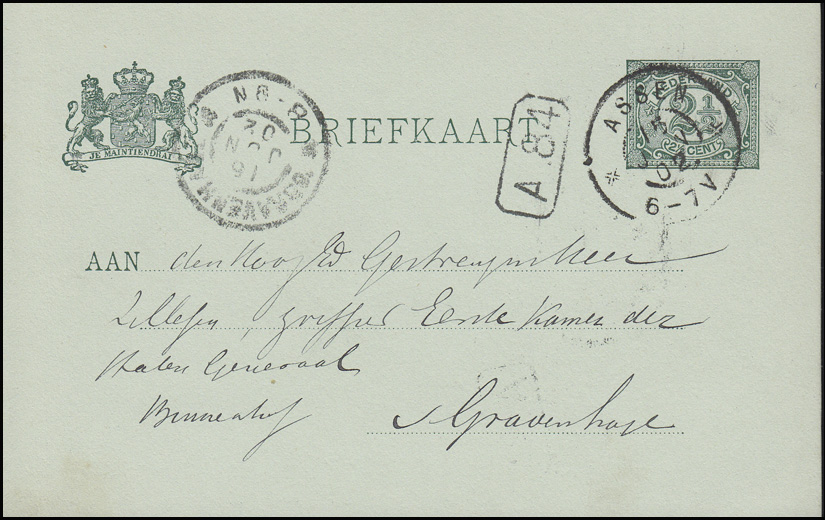 JE MAINTIENDRAI
BRIEFKAART
A 84
NEDERLAND
2½ CENT
ASSEN
02
6-7V
8-8N
16 JUN
02
'SGRAVENH
AAN den Hoog Ed Gestrengen Heer
griffier Eerste Kamer der
Staten Generaal
Binnenhof s Gravenhage